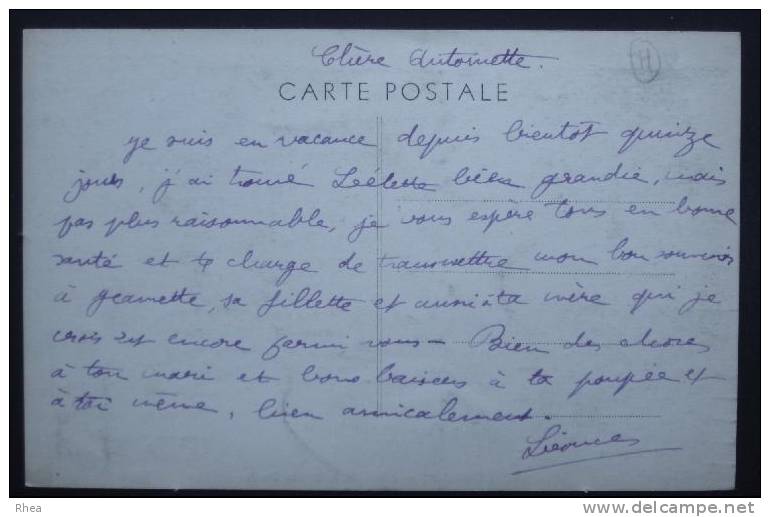 Chère Antoinette.
H
CARTE POSTALE
Je suis en vacance depuis bientot quinze
jours, j'ai trouvé bien grandie, mais
pas plus raisonnable, je vous espère tous en bonne
santé et te charge de transmettre mon bon souvenir
à Jeannette, sa fillette et aussi à ta mère qui je
crois est encore parmi vous - Bien des choses
à ton mari et bons baisers à ta poupée et
à toi même, bien amicalement.
Rhea
www.delcampe.net